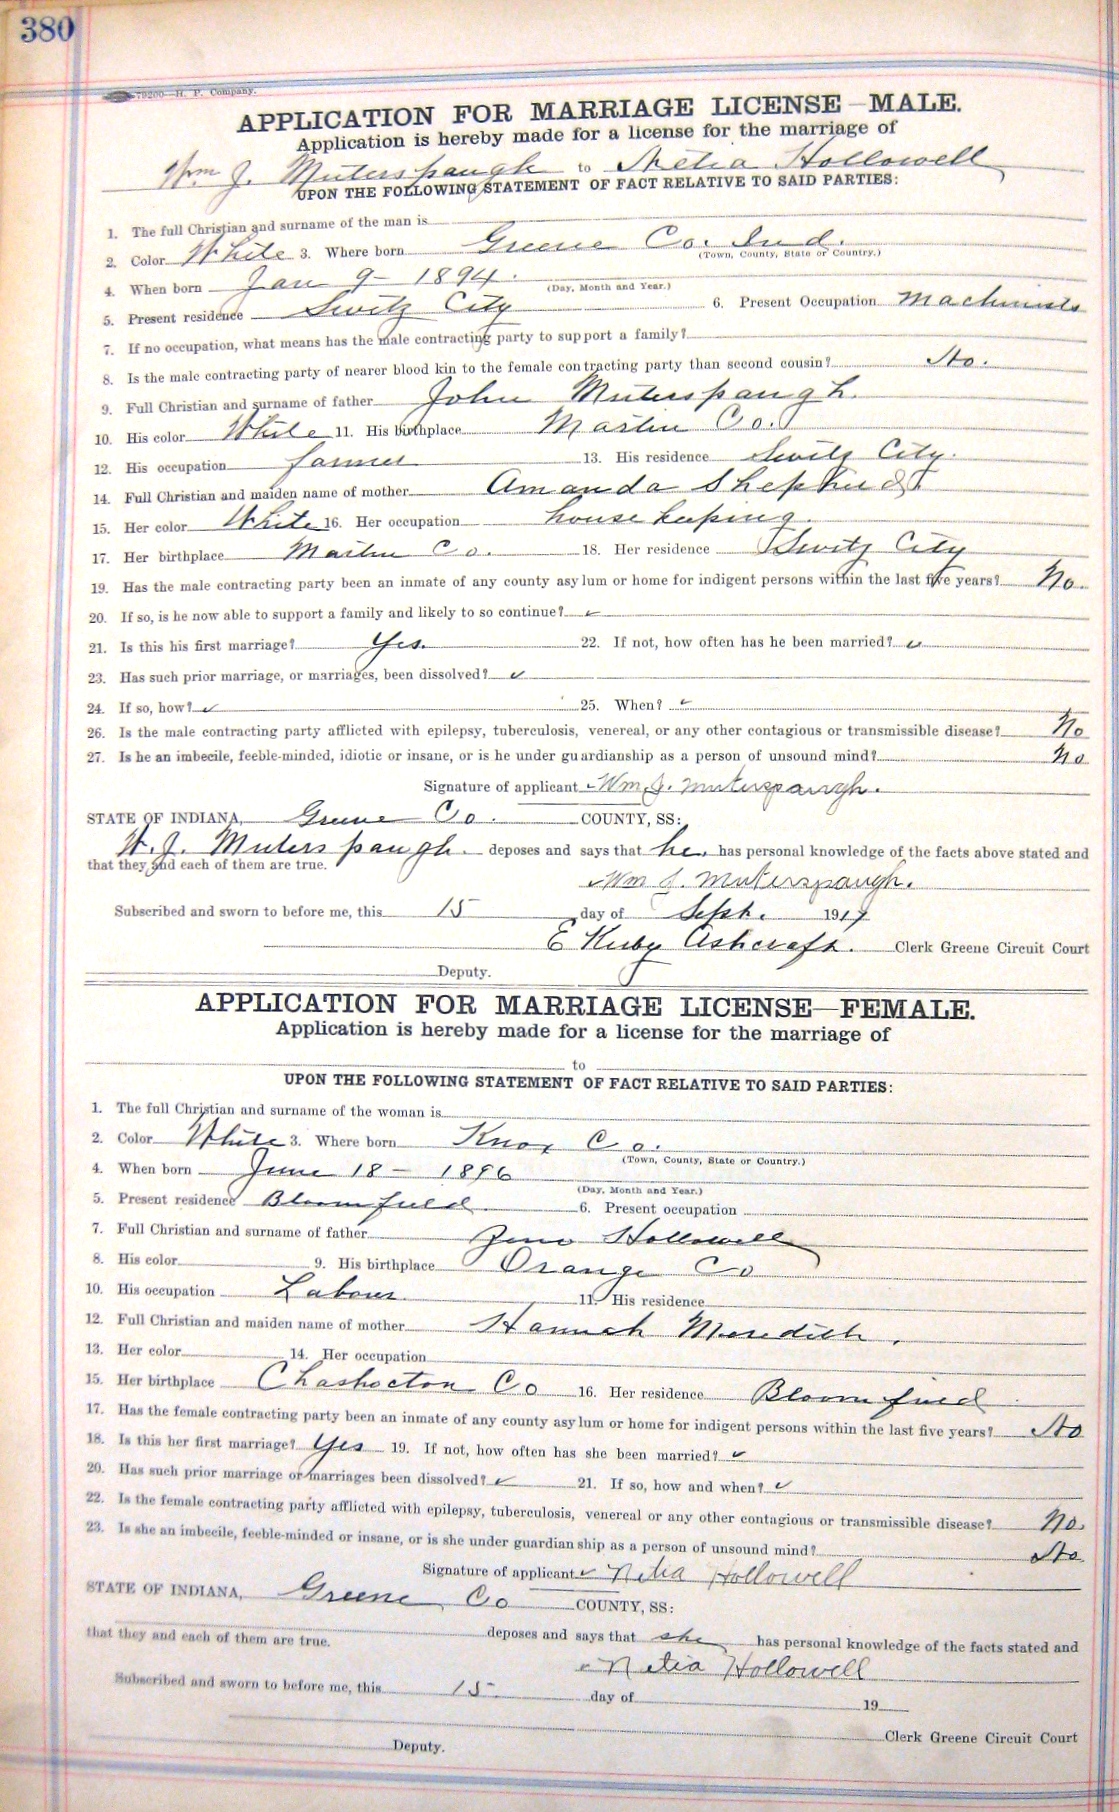 380
79200—H. P. Company.
APPLICATION FOR MARRIAGE LICENSE—MALE.
Application is hereby made for a license for the marriage of
Wm J. Muterspaugh to Netia Hollowell
UPON THE FOLLOWING STATEMENT OF FACT RELATIVE TO SAID PARTIES:
1. The full Christian and surname of the man is
2. Color White 3. Where born Greene Co. Ind.
(Town, County, State or Country.)
4. When born Jan 9 - 1894.
(Day, Month and Year.)
5. Present residence Switz City 6. Present Occupation Machinists
7. If no occupation, what means has the male contracting party to support a family?
8. Is the male contracting party of nearer blood kin to the female contracting party than second cousin? No.
9. Full Christian and surname of father John Muterspaugh.
10. His color White 11. His birthplace Martin Co.
12. His occupation farmer 13. His residence Switz City.
14. Full Christian and maiden name of mother Amanda
15. Her color White 16. Her occupation house keeping.
17. Her birthplace Martin Co. 18. Her residence Switz City
19. Has the male contracting party been an inmate of any county asylum or home for indigent persons within the last five years? No.
20. If so, is he now able to support a family and likely to so continue? ✓
21. Is this his first marriage? Yes. 22. If not, how often has he been married? ✓
23. Has such prior marriage, or marriages, been dissolved? ✓
24. If so, how? ✓ 25. When? ✓
26. Is the male contracting party afflicted with epilepsy, tuberculosis, venereal, or any other contagious or transmissible disease? No
27. Is he an imbecile, feeble-minded, idiotic or insane, or is he under guardianship as a person of unsound mind? No
Signature of applicant Wm. J. Muterspaugh.
STATE OF INDIANA, Greene Co. COUNTY, SS:
W. J. Muterspaugh. deposes and says that he has personal knowledge of the facts above stated and
that they and each of them are true.
Wm J. Muterspaugh.
Subscribed and sworn to before me, this 15 day of Sept. 1917
E Kirby Ashcraft. Clerk Greene Circuit Court
Deputy.
APPLICATION FOR MARRIAGE LICENSE—FEMALE.
Application is hereby made for a license for the marriage of
to
UPON THE FOLLOWING STATEMENT OF FACT RELATIVE TO SAID PARTIES:
1. The full Christian and surname of the woman is
2. Color White 3. Where born Knox Co.
(Town, County, State or Country.)
4. When born June 18 - 1896
(Day, Month and Year.)
5. Present residence Bloomfield. 6. Present occupation
7. Full Christian and surname of father Hollowell
8. His color 9. His birthplace Orange Co
10. His occupation Laborer. 11. His residence
12. Full Christian and maiden name of mother Hannah Meredith.
13. Her color 14. Her occupation
15. Her birthplace Choshocton Co 16. Her residence Bloomfield
17. Has the female contracting party been an inmate of any county asylum or home for indigent persons within the last five years? No
18. Is this her first marriage? Yes 19. If not, how often has she been married? ✓
20. Has such prior marriage or marriages been dissolved? ✓ 21. If so, how and when? ✓
22. Is the female contracting party afflicted with epilepsy, tuberculosis, venereal or any other contagious or transmissible disease? No.
23. Is she an imbecile, feeble-minded or insane, or is she under guardianship as a person of unsound mind? No
Signature of applicant ✓ Netia Hollowell
STATE OF INDIANA, Greene Co COUNTY, SS:
deposes and says that she has personal knowledge of the facts stated and
that they and each of them are true.
Netia Hollowell
Subscribed and sworn to before me, this 15 day of 19
Clerk Greene Circuit Court
Deputy.